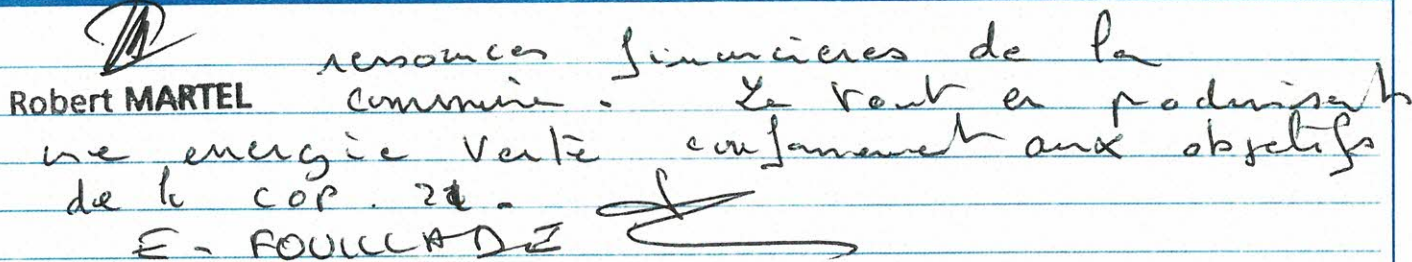 ressources financieres de la
Robert MARTEL commune. Le tout en produisant
une energie verte conformement aux objectifs
de la COP. 21.
E. FOUILLADE